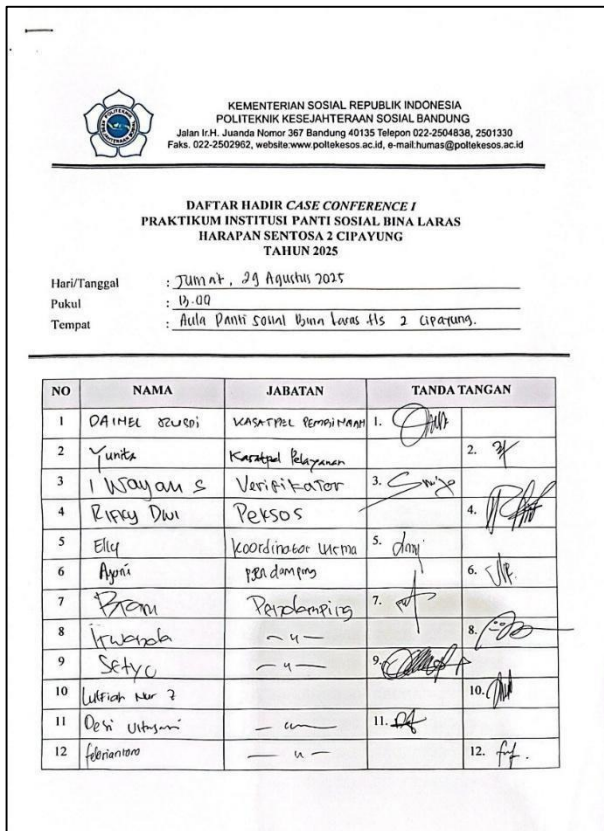 KEMENTERIAN SOSIAL REPUBLIK INDONESIA
POLITEKNIK KESEJAHTERAAN SOSIAL BANDUNG
Jalan Ir.H. Juanda Nomor 367 Bandung 40135 Telepon 022-2504838, 2501330
Faks. 022-2502962, website:www.poltekesos.ac.id, e-mail:humas@poltekesos.ac.id
DAFTAR HADIR CASE CONFERENCE I
PRAKTIKUM INSTITUSI PANTI SOSIAL BINA LARAS
HARAPAN SENTOSA 2 CIPAYUNG
TAHUN 2025
Hari/Tanggal : Jumat, 29 Agustus 2025
Pukul : 13.00
Tempat : Aula Panti Sosial Bina Laras Hs 2 Cipayung.
NO NAMA JABATAN TANDA TANGAN
1 KASATPEL PEMBINAAN 1.
2 Yunita Kasatpel Pelayanan 2.
3 I Wayan S Verifikator 3.
4 RIFKY DWI PEKSOS 4.
5 Elly Koordinator 5.
6 Ayoni pendamping 6.
7 Bram Pendamping 7.
8 Irwanda — u — 8.
9 Setyo — u — 9.
10 Lutfiah Nur 10.
11 Desi 11.
12 febriantoro — u — 12.